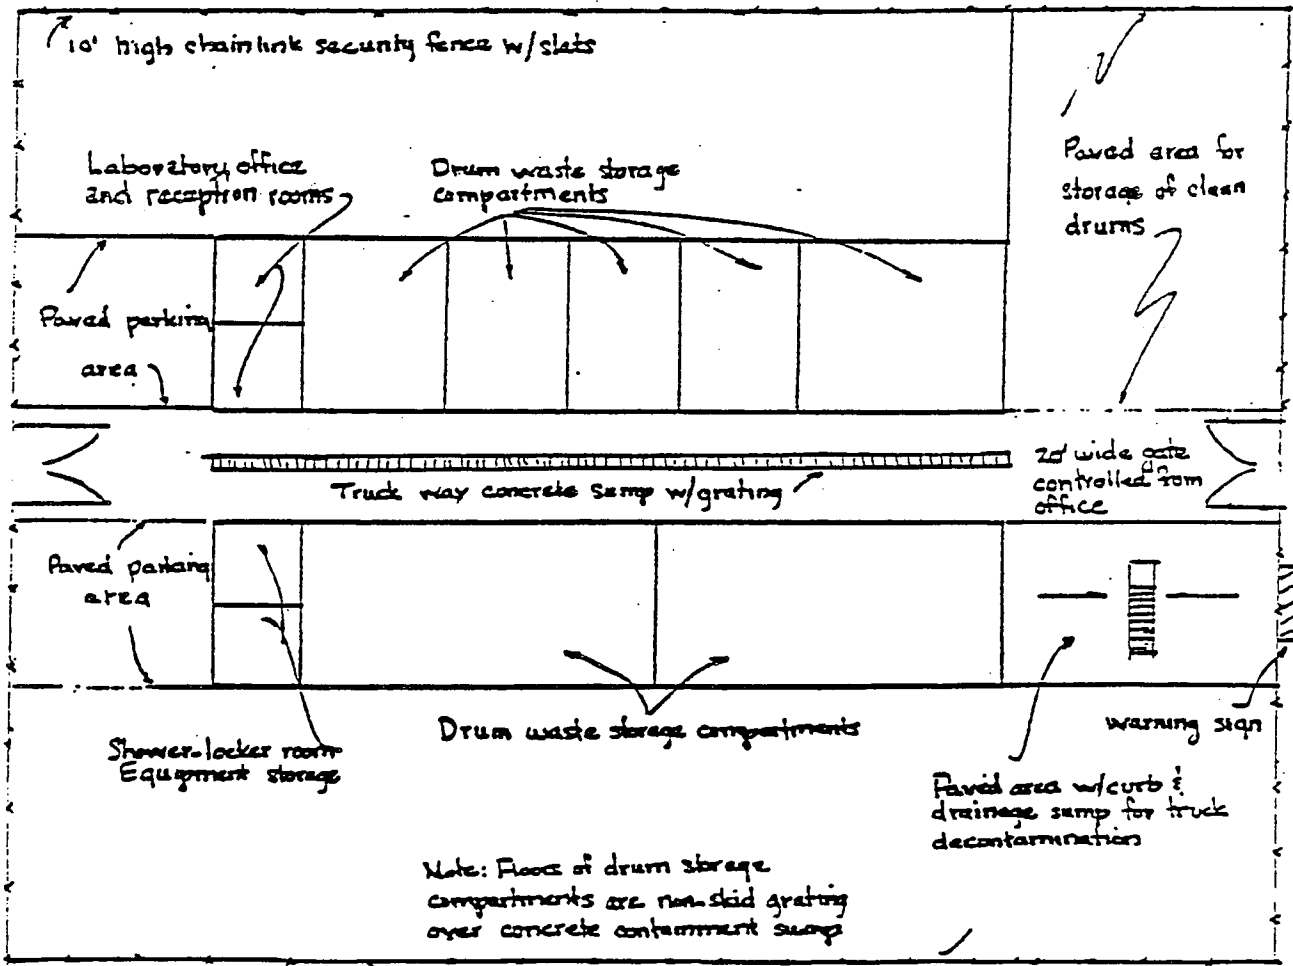 10' high chainlink security fence w/slats
Laboratory, office
and reception rooms
Drum waste storage
compartments
Paved area for
storage of clean
drums
Paved parking
area
20' wide gate
controlled from
office
Truck way concrete sump w/grating
Paved parking
area
Drum waste storage compartments
warning sign
Shower-locker room
Equipment storage
Paved area w/curb &
drainage sump for truck
decontamination
Note: Floors of drum storage
compartments are non-skid grating
over concrete containment sump